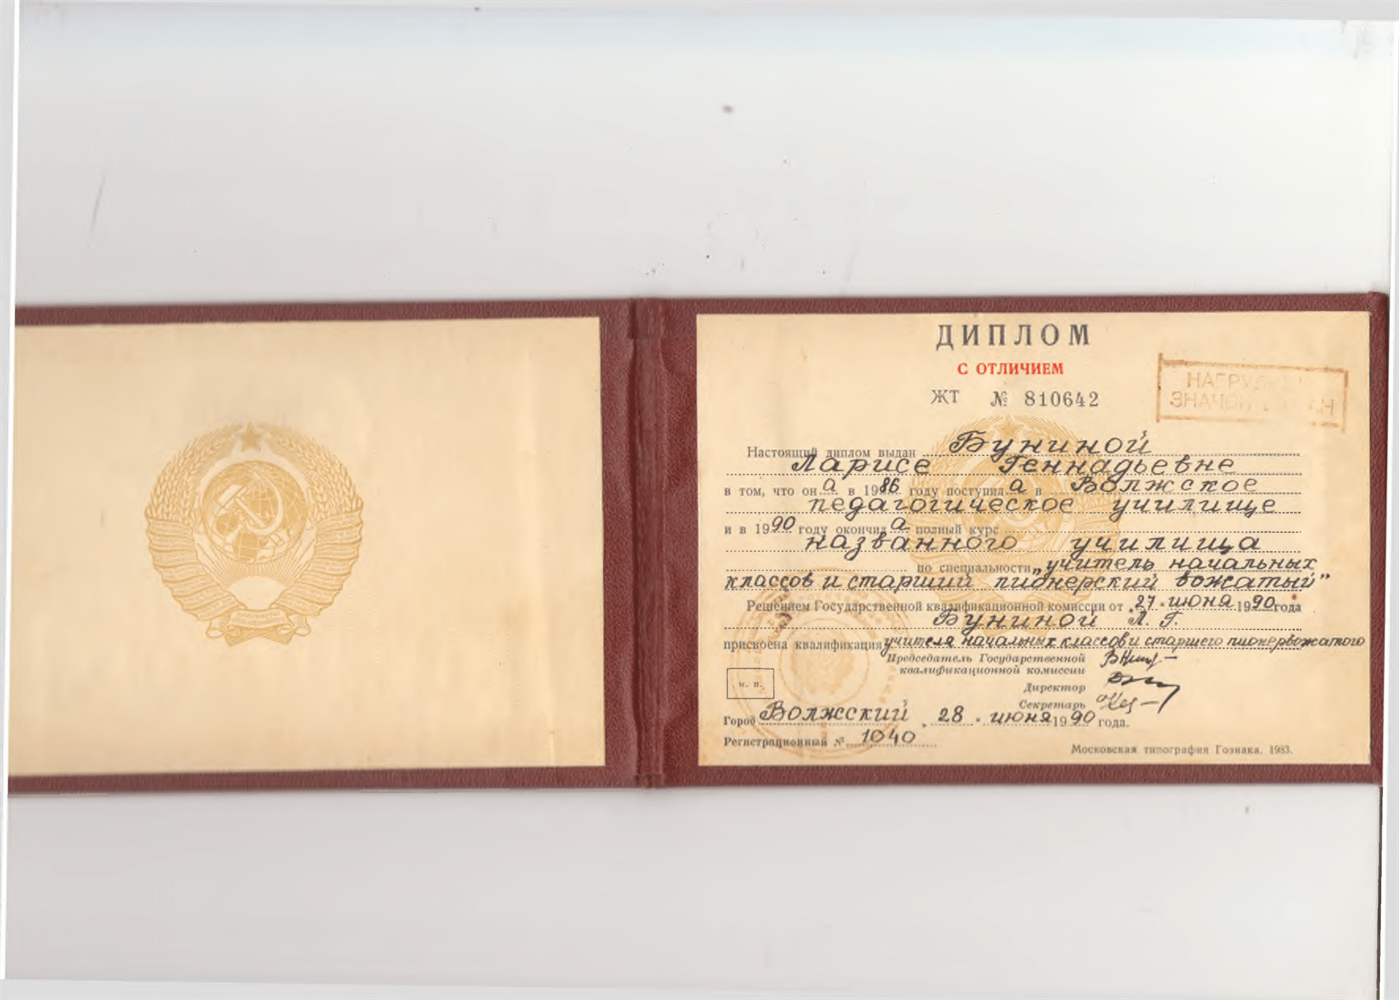 ДИПЛОМ
С ОТЛИЧИЕМ
ЖТ № 810642
Настоящий диплом выдан Буниной
Ларисе Геннадьевне
в том, что она в 1986 году поступила в Волжское
педагогическое училище
и в 1990 году окончила полный курс
названного училища
по специальности „учитель начальных
классов и старший пионерский вожатый"
Решением Государственной квалификационной комиссии от 27 июня 1990 года
Буниной Л. Г.
присвоена квалификация учителя начальных классов и старшего пионервожатого
Председатель Государственной
квалификационной комиссии
Директор
Секретарь
м. п.
Город Волжский, 28 июня 1990 года.
Регистрационный № 1040
Московская типография Гознака. 1983.